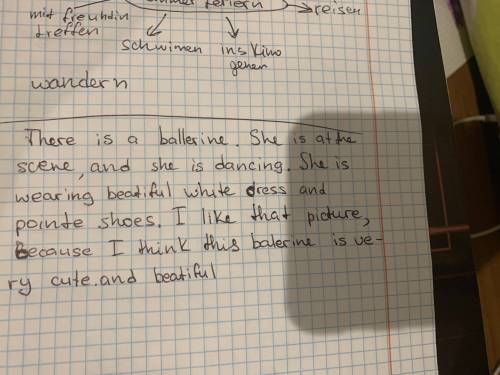 mit freundin feriern reisen
treffen
schwimen ins Kino
gehen
wandern
There is a ballerine. She is at the
scene, and she is dancing. She is
wearing beatiful white dress and
pointe shoes. I like that picture,
Because I think this balerine is ve-
ry cute.and beatiful